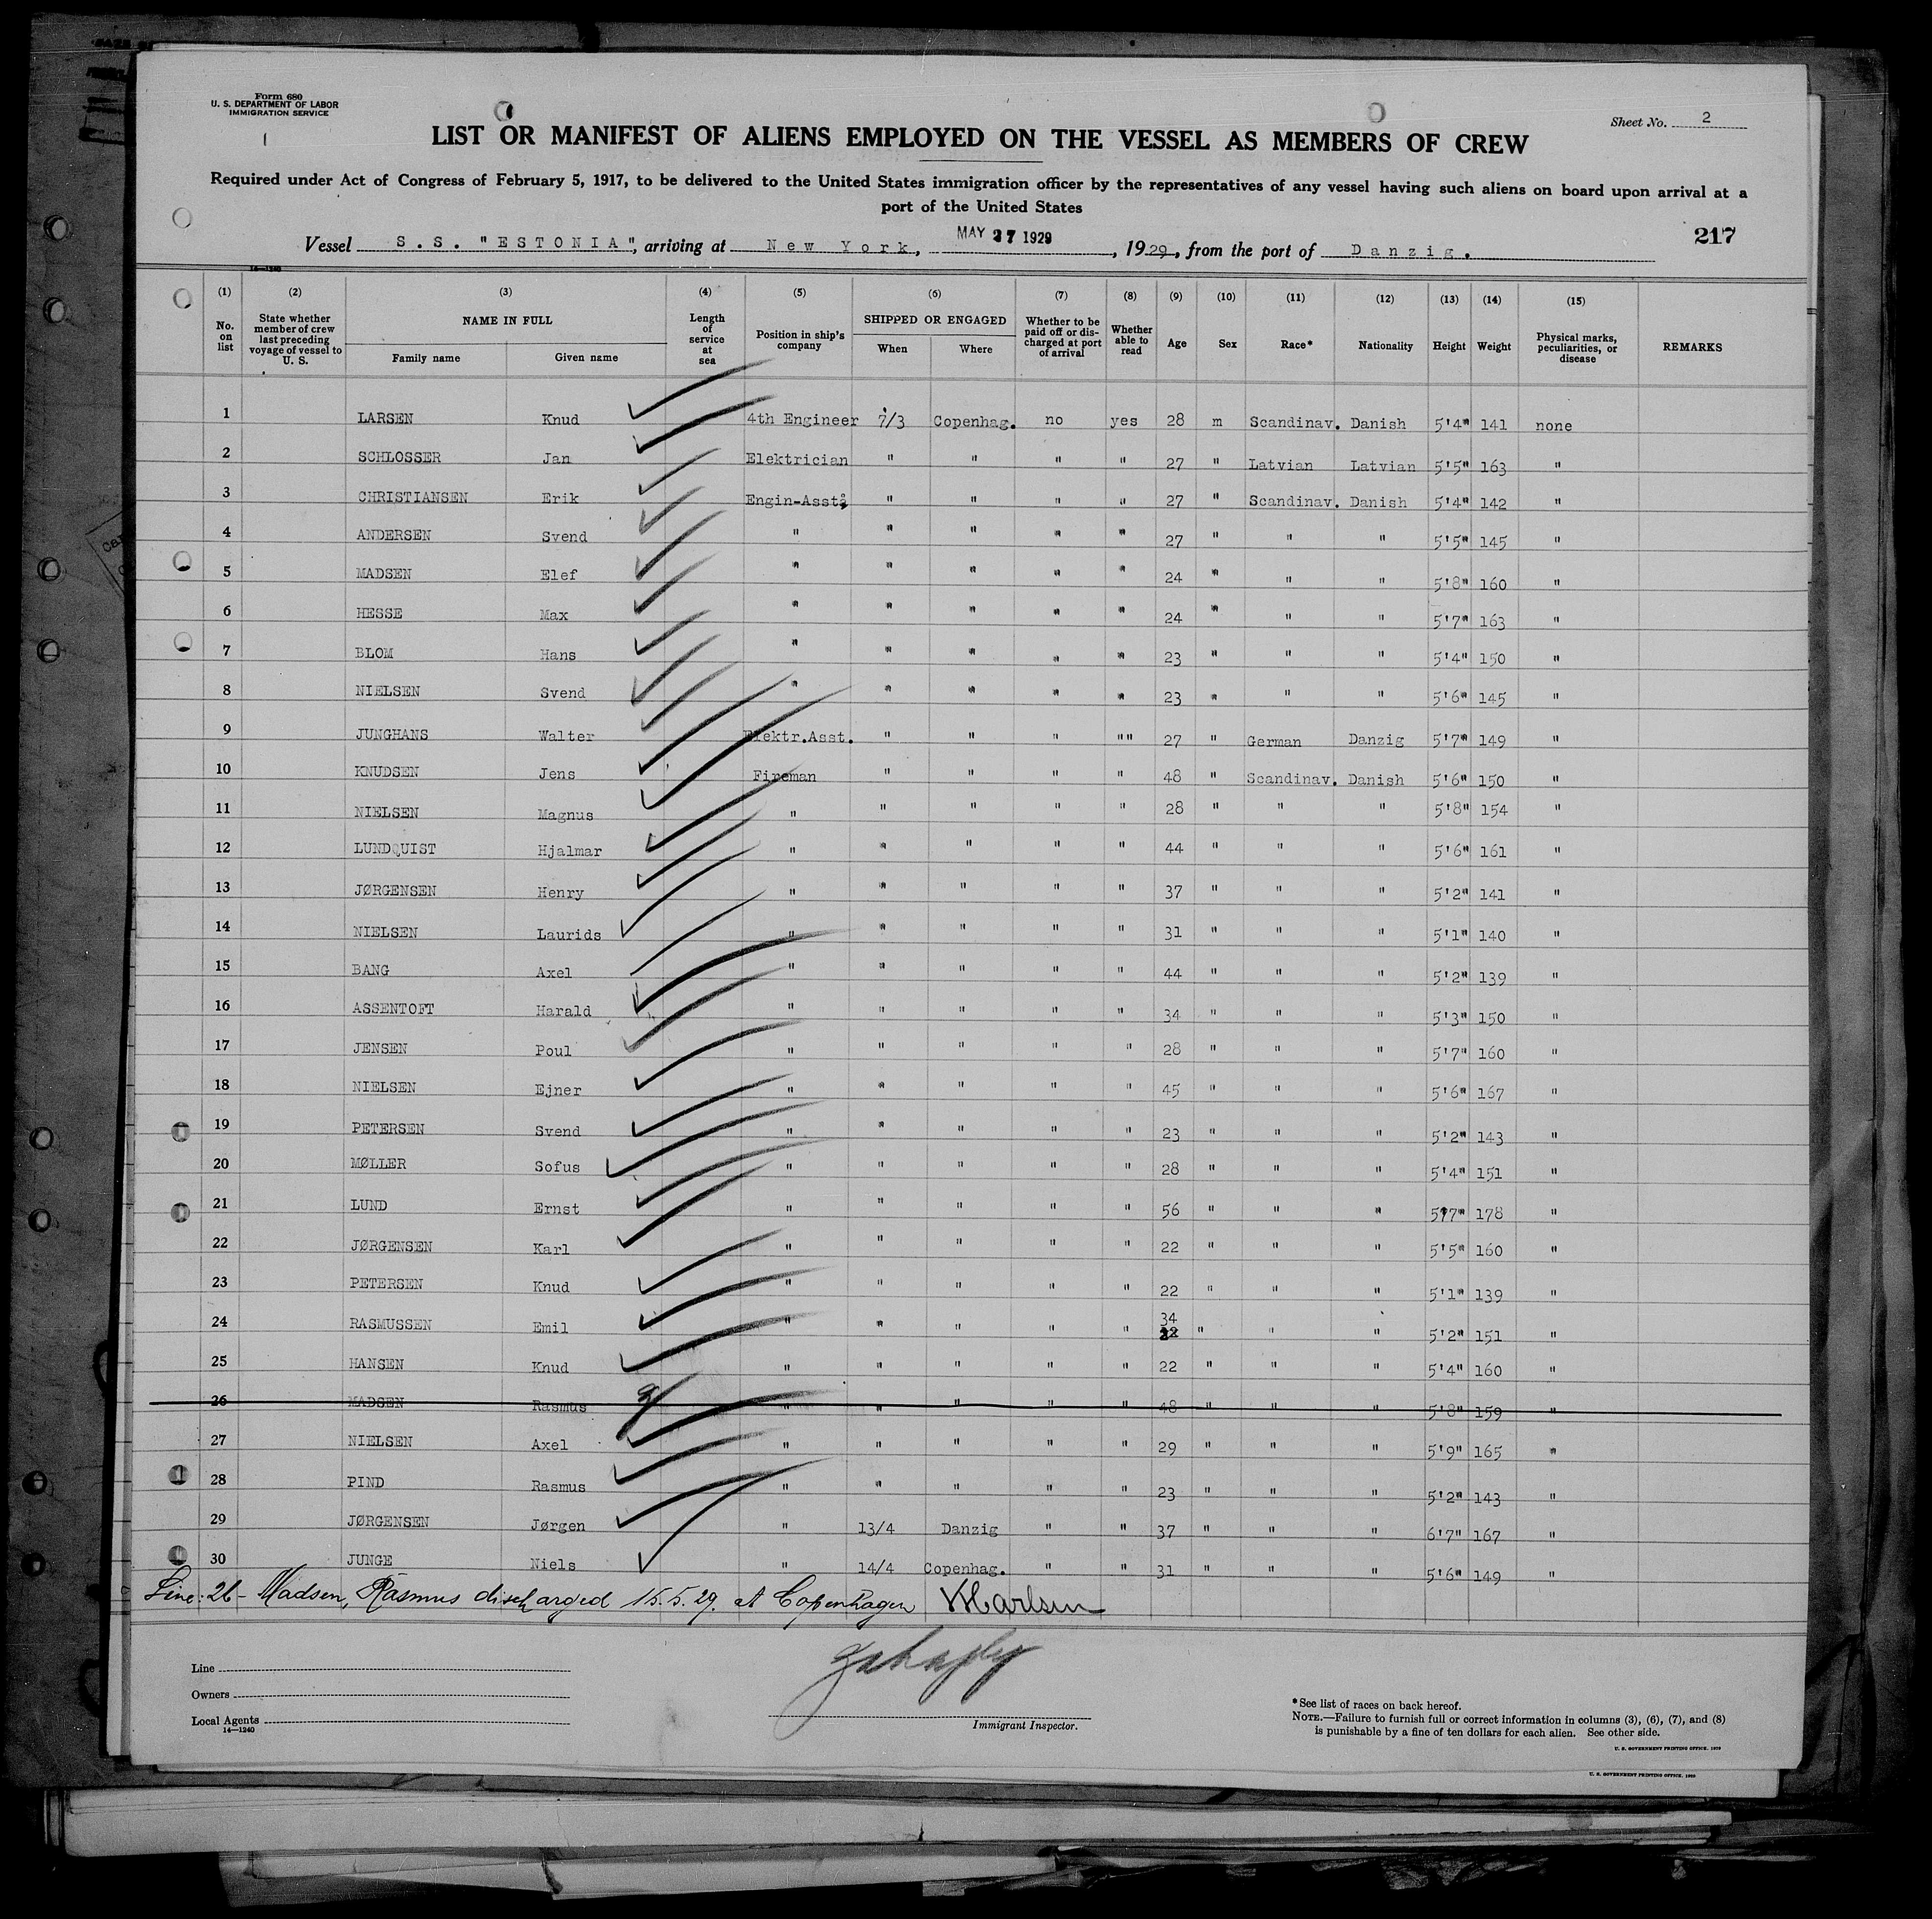 Form 680
U. S. DEPARTMENT OF LABOR
IMMIGRATION SERVICE
Sheet No. 2
LIST OR MANIFEST OF ALIENS EMPLOYED ON THE VESSEL AS MEMBERS OF CREW
Required under Act of Congress of February 5, 1917, to be delivered to the United States immigration officer by the representatives of any vessel having such aliens on board upon arrival at a
port of the United States
217
Vessel S.S. "ESTONIA", arriving at New York, MAY 27 1929, 1929, from the port of Danzig.
14—1240
(1) No. on list (2) State whether member of crew last preceding voyage of vessel to U. S. (3) NAME IN FULL Family name Given name (4) Length of service at sea (5) Position in ship's company (6) SHIPPED OR ENGAGED When Where (7) Whether to be paid off or discharged at port of arrival (8) Whether able to read (9) Age (10) Sex (11) Race* (12) Nationality (13) Height (14) Weight (15) Physical marks, peculiarities, or disease REMARKS
1 LARSEN Knud 4th Engineer 7/3 Copenhag. no yes 28 m Scandinav. Danish 5'4" 141 none
2 SCHLOSSER Jan Elektrician " " " " 27 " Latvian Latvian 5'5" 163 "
3 CHRISTIANSEN Erik Engin-Asst. " " " " 27 " Scandinav. Danish 5'4" 142 "
4 ANDERSEN Svend " " " " " 27 " " " 5'5" 145 "
5 MADSEN Elef " " " " " 24 " " " 5'8" 160 "
6 HESSE Max " " " " " 24 " " " 5'7" 163 "
7 BLOM Hans " " " " " 23 " " " 5'4" 150 "
8 NIELSEN Svend " " " " " 23 " " " 5'6" 145 "
9 JUNGHANS Walter Elektr.Asst. " " " "" 27 " German Danzig 5'7" 149 "
10 KNUDSEN Jens Fireman " " " " 48 " Scandinav. Danish 5'6" 150 "
11 NIELSEN Magnus " " " " " 28 " " " 5'8" 154 "
12 LUNDQUIST Hjalmar " " " " " 44 " " " 5'6" 161 "
13 JØRGENSEN Henry " " " " " 37 " " " 5'2" 141 "
14 NIELSEN Laurids " " " " " 31 " " " 5'1" 140 "
15 BANG Axel " " " " " 44 " " " 5'2" 139 "
16 ASSENTOFT Harald " " " " " 34 " " " 5'3" 150 "
17 JENSEN Poul " " " " " 28 " " " 5'7" 160 "
18 NIELSEN Ejner " " " " 45 " " " 5'6" 167 "
19 PETERSEN Svend " " " " " 23 " " " 5'2" 143 "
20 MØLLER Sofus " " " " " 28 " " " 5'4" 151 "
21 LUND Ernst " " " " " 56 " " " 5'7" 178 "
22 JØRGENSEN Karl " " " " " 22 " " " 5'5" 160 "
23 PETERSEN Knud " " " " " 22 " " " 5'1" 139 "
24 RASMUSSEN Emil " " " " " 34 22 " " " 5'2" 151 "
25 HANSEN Knud " " " " " 22 " " " 5'4" 160 "
26 MADSEN Rasmus " " " " " 48 " " " 5'8" 159 "
27 NIELSEN Axel " " " " " 29 " " " 5'9" 165 "
28 PIND Rasmus " " " " " 23 " " " 5'2" 143 "
29 JØRGENSEN Jørgen " 13/4 Danzig " " 37 " " " 6'7" 167 "
30 JUNGE Niels " 14/4 Copenhag. " " 31 " " " 5'6" 149 "
Line: 26 - Madsen, Rasmus discharged 15.5.29. at Copenhagen
Line
Owners
Local Agents
14—1240
Immigrant Inspector.
*See list of races on back hereof.
NOTE.—Failure to furnish full or correct information in columns (3), (6), (7), and (8)
is punishable by a fine of ten dollars for each alien. See other side.
U. S. GOVERNMENT PRINTING OFFICE. 1929
U. S. GOVERNMENT PRINTING OFFICE. 1929